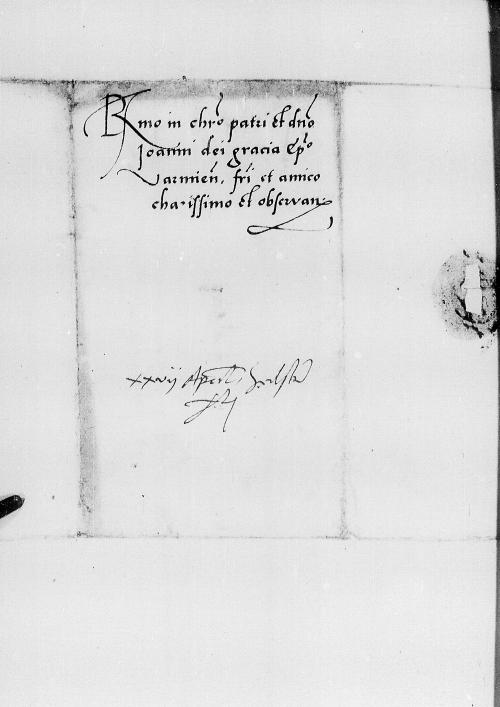 Rmo in chro patri et dno
Joanni dei gracia Epo
Varmien. fri et amico
charissimo et observan.
xxvij April